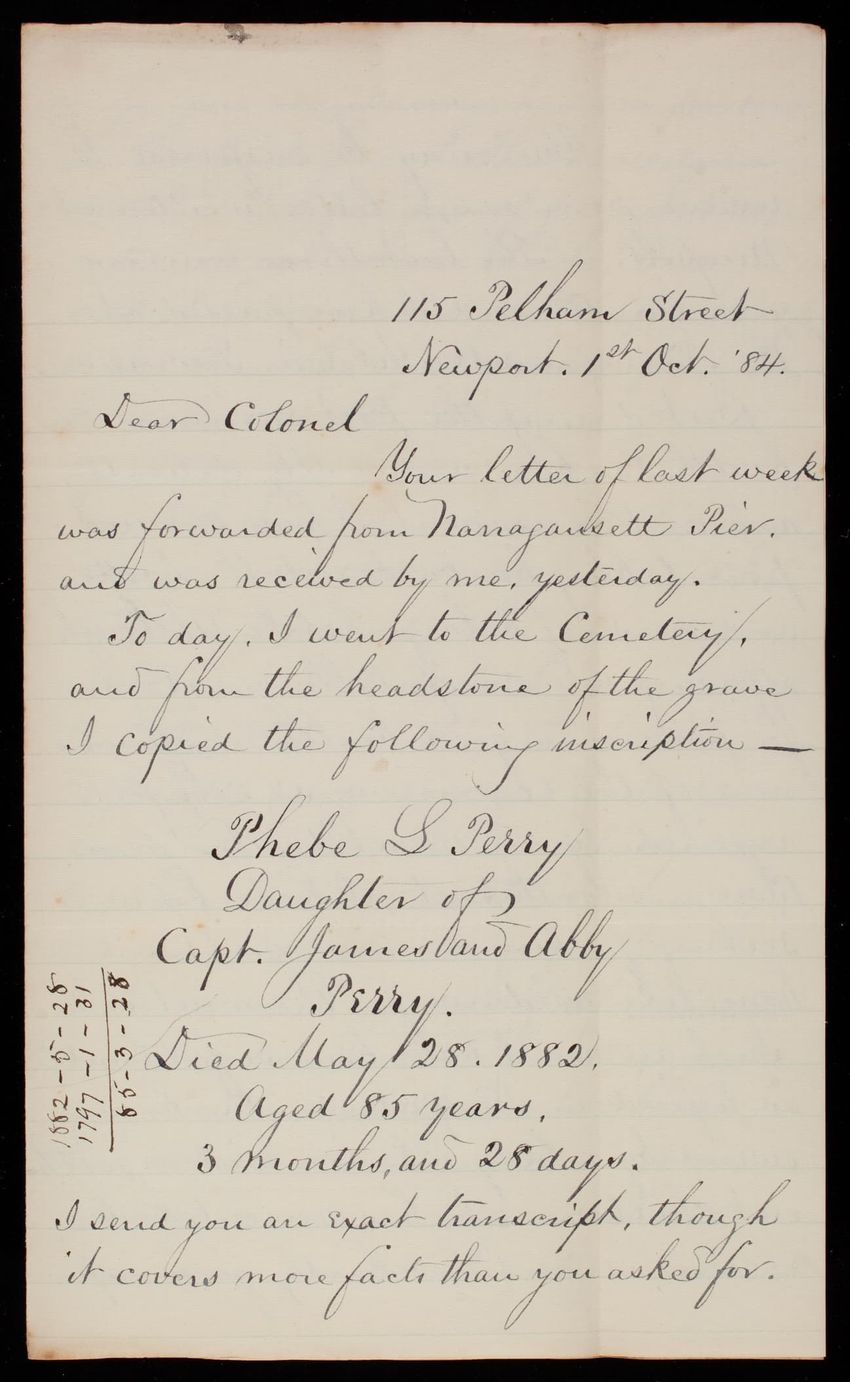 115 Pelham Street
Newport. 1st Oct. '84.
Dear Colonel
Your letter of last week
was forwarded from Narragansett Pier.
and was received by me, yesterday.
To day, I went to the Cemetery,
and from the headstone of the grave
I copied the following inscription —
Phebe L Perry
Daughter of
Capt. James and Abby
Perry.
Died May 28. 1882.
Aged 85 years,
3 months, and 28 days.
I send you an exact transcript, though
it covers more facts than you asked for.
1882-5-28
1797-1-31
85-3-28